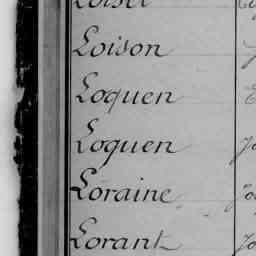 Loison
Loquen
Loquen
Loraine
Lorant